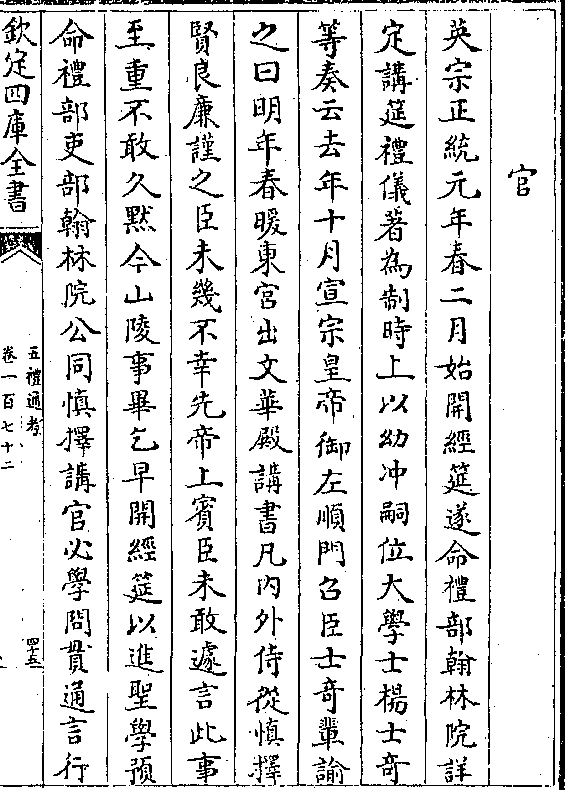 官
英宗正統元年春二月始開經筵遂命禮部翰林院詳
定講筵禮儀著為制時上以幼冲嗣位大學士楊士奇
等奏云去年十月宣宗皇帝御左順門召臣士奇輩諭
之曰明年春暖東宮出文華殿講書凡內外侍從慎擇
賢良廉謹之臣未幾不幸先帝上賓臣未敢遽言此事
至重不敢久黙今山陵事畢乞早開經筵以進聖學預
命禮部吏部翰林院公同慎擇講官必學問貫通言行
欽定四庫全書
五禮通考
卷一百七十二
四十五